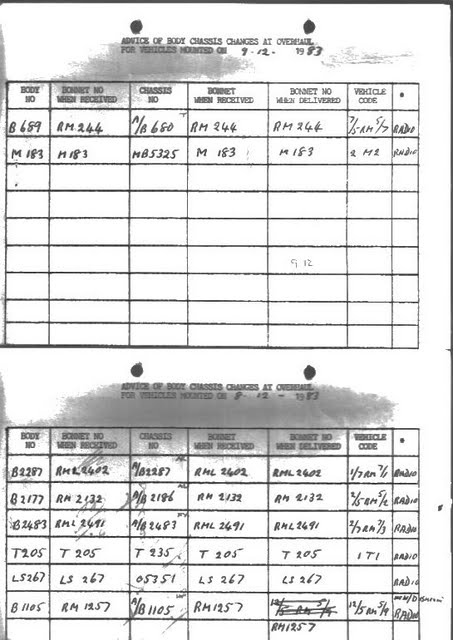 ADVICE OF BODY CHASSIS CHANGES AT OVERHAUL
FOR VEHICLES MOUNTED ON 9-12- 1983
BODY NO BONNET NO WHEN RECEIVED CHASSIS NO BONNET WHEN RECEIVED BONNET NO WHEN DELIVERED VEHICLE CODE *
B689 RM244 A/B680 RM244 RM244 7/5RM5/7 RADIO
M183 M183 MB5325 M 183 M 183 2 M2 RADIO
9 12
ADVICE OF BODY CHASSIS CHANGES AT OVERHAUL
FOR VEHICLES MOUNTED ON 8-12-1983
BODY NO BONNET NO WHEN RECEIVED CHASSIS NO BONNET WHEN RECEIVED BONNET NO WHEN DELIVERED VEHICLE CODE *
B2287 RML2402 A/B2287 RML2402 RML2402 1/7RM7/1 RADIO
B2177 RM2132 A/B2186 RM2132 RM2132 2/5RM5/2 RADIO
B2483 RML2491 A/B2483 RML2491 RML2491 2/7RM7/3 RADIO
T205 T 205 T 235 T 205 T 205 1 T1 RADIO
LS267 LS 267 05351 LS 267 LS 267 RADIO
B1105 RM1257 A/B1105 RM1257 12/5RM5/9 RADIO
RM1257